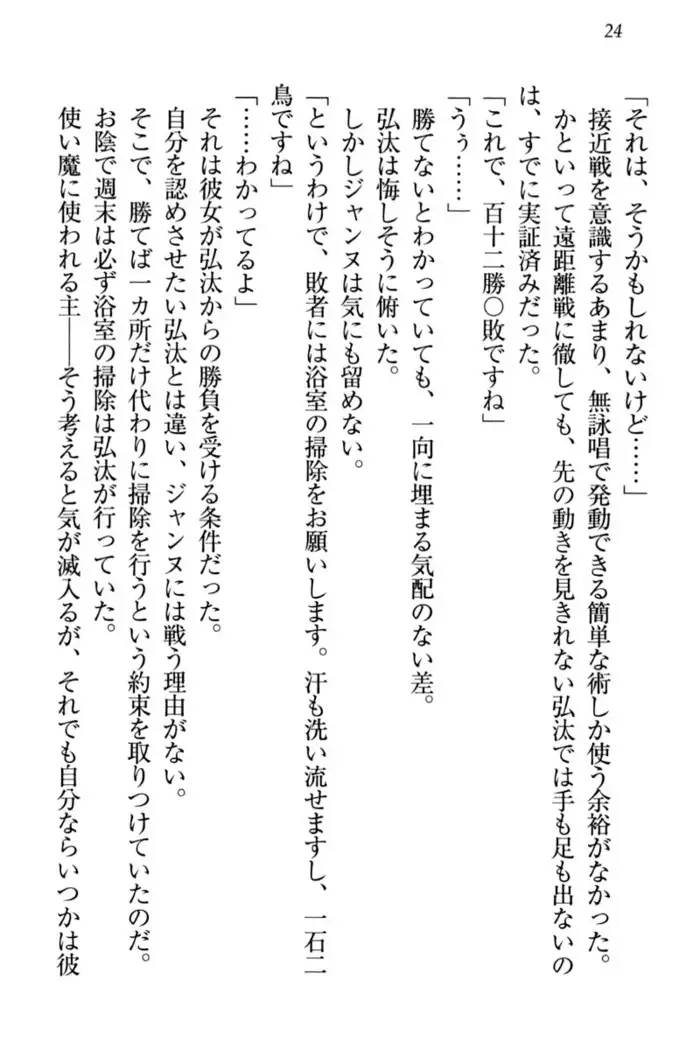 24
「それは、そうかもしれないけど……」
接近戦を意識するあまり、無詠唱で発動できる簡単な術しか使う余裕がなかった。
かといって遠距離戦に徹しても、先の動きを見きれない弘汰では手も足も出ないの
は、すでに実証済みだった。
「これで、百十二勝〇敗ですね」
「うぅ……」
勝てないとわかっていても、一向に埋まる気配のない差。
弘汰は悔しそうに俯いた。
しかしジャンヌは気にも留めない。
「というわけで、敗者には浴室の掃除をお願いします。汗も洗い流せますし、一石二
鳥ですね」
「……わかってるよ」
それは彼女が弘汰からの勝負を受ける条件だった。
自分を認めさせたい弘汰とは違い、ジャンヌには戦う理由がない。
そこで、勝てば一カ所だけ代わりに掃除を行うという約束を取りつけていたのだ。
お陰で週末は必ず浴室の掃除は弘汰が行っていた。
使い魔に使われる主――そう考えると気が滅入るが、それでも自分ならいつかは彼